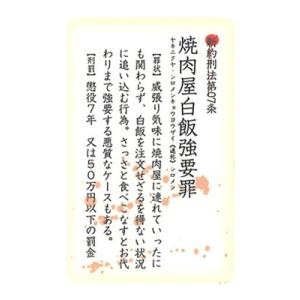 新約刑法第07条
焼肉屋白飯強要罪
ヤキニクヤ・シロメシキョウヨウザイ《通称》シロメシ
【罪状】威張り気味に焼肉屋に連れていったに
も関わらず、白飯を注文せざるを得ない状況
に追い込む行為。さっさと食べこなすとお代
わりまで強要する悪質なケースもある。
【刑罰】懲役7年 又は50万円以下の罰金